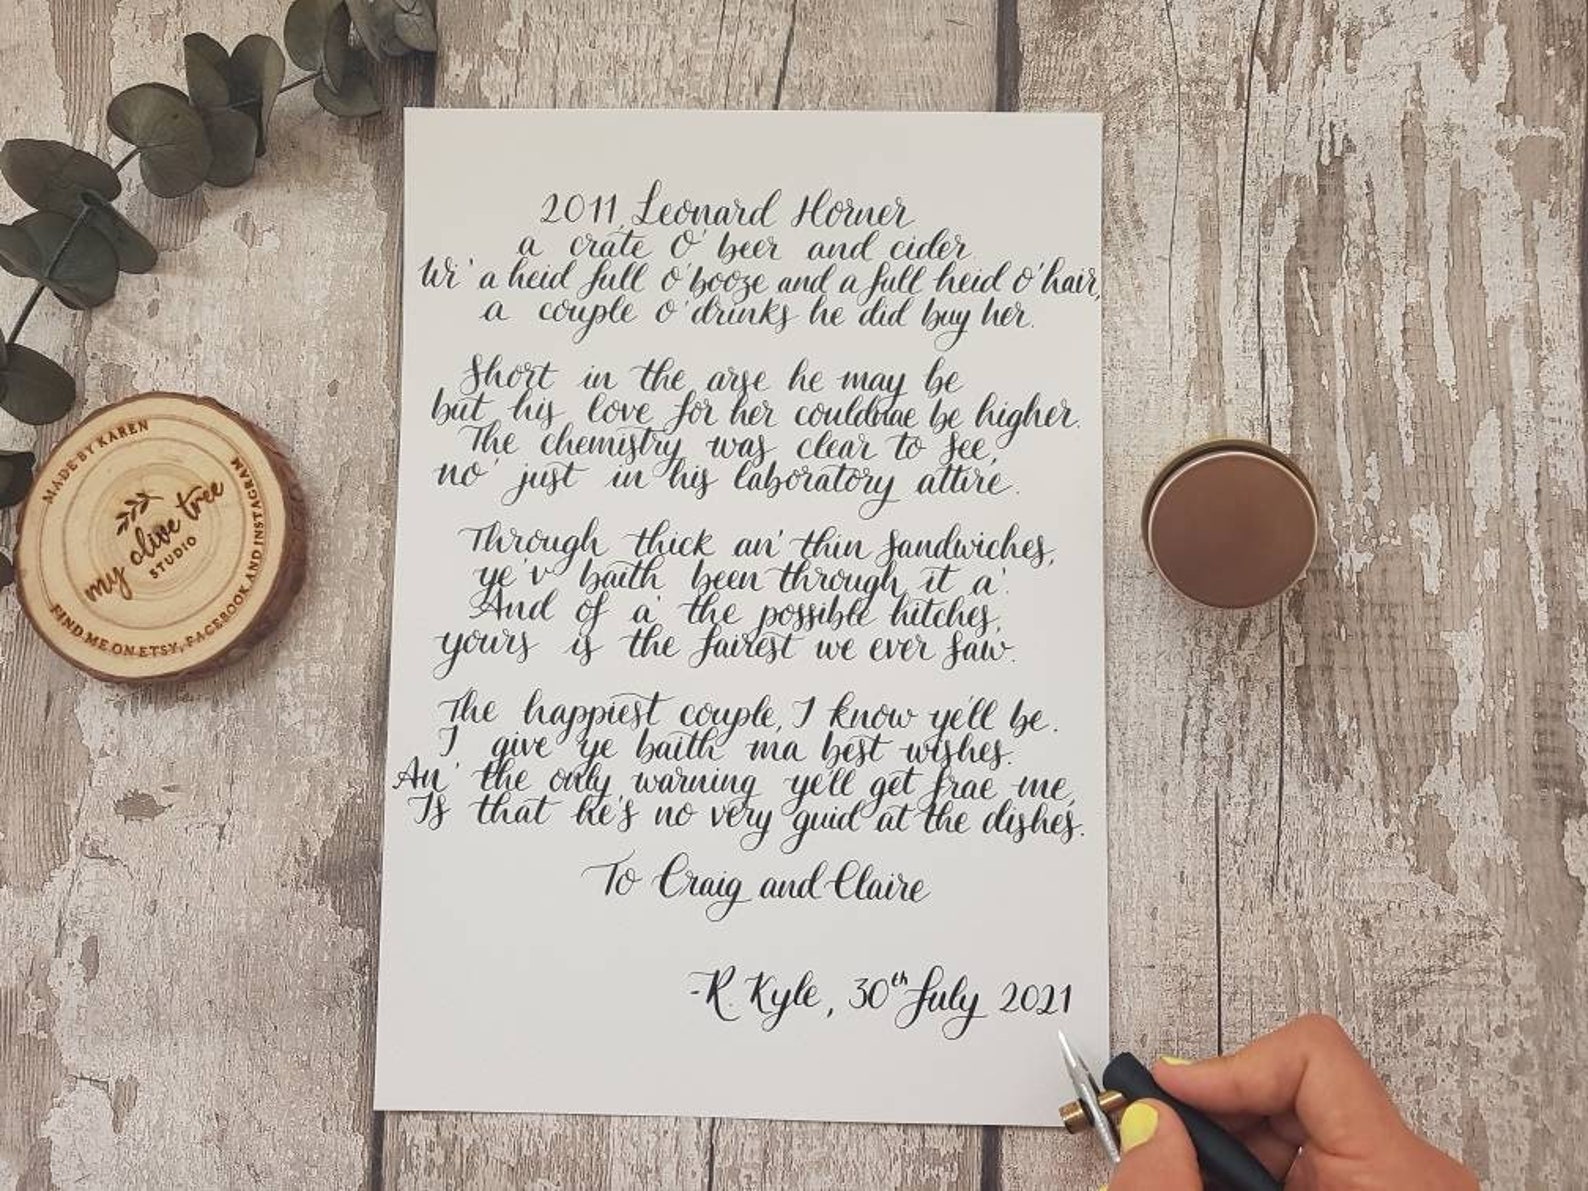 2011, Leonard Horner
a crate O' beer and cider
Wi' a heid full o' booze and a full heid o' hair,
a couple o' drinks he did buy her.
Short in the arse he may be
but his love for her couldnae be higher.
The chemistry was clear to see,
no' just in his laboratory attire.
Through thick an' thin sandwiches,
ye'v baith been through it a'.
And of a' the possible hitches,
yours is the fairest we ever saw.
The happiest couple, I know ye'll be.
I give ye baith ma best wishes.
An' the only warning ye'll get frae me,
Is that he's no very guid at the dishes.
To Craig and Claire
-R. Kyle, 30th July 2021
MADE BY KAREN
my olive tree
STUDIO
FIND ME ON ETSY, FACEBOOK AND INSTAGRAM